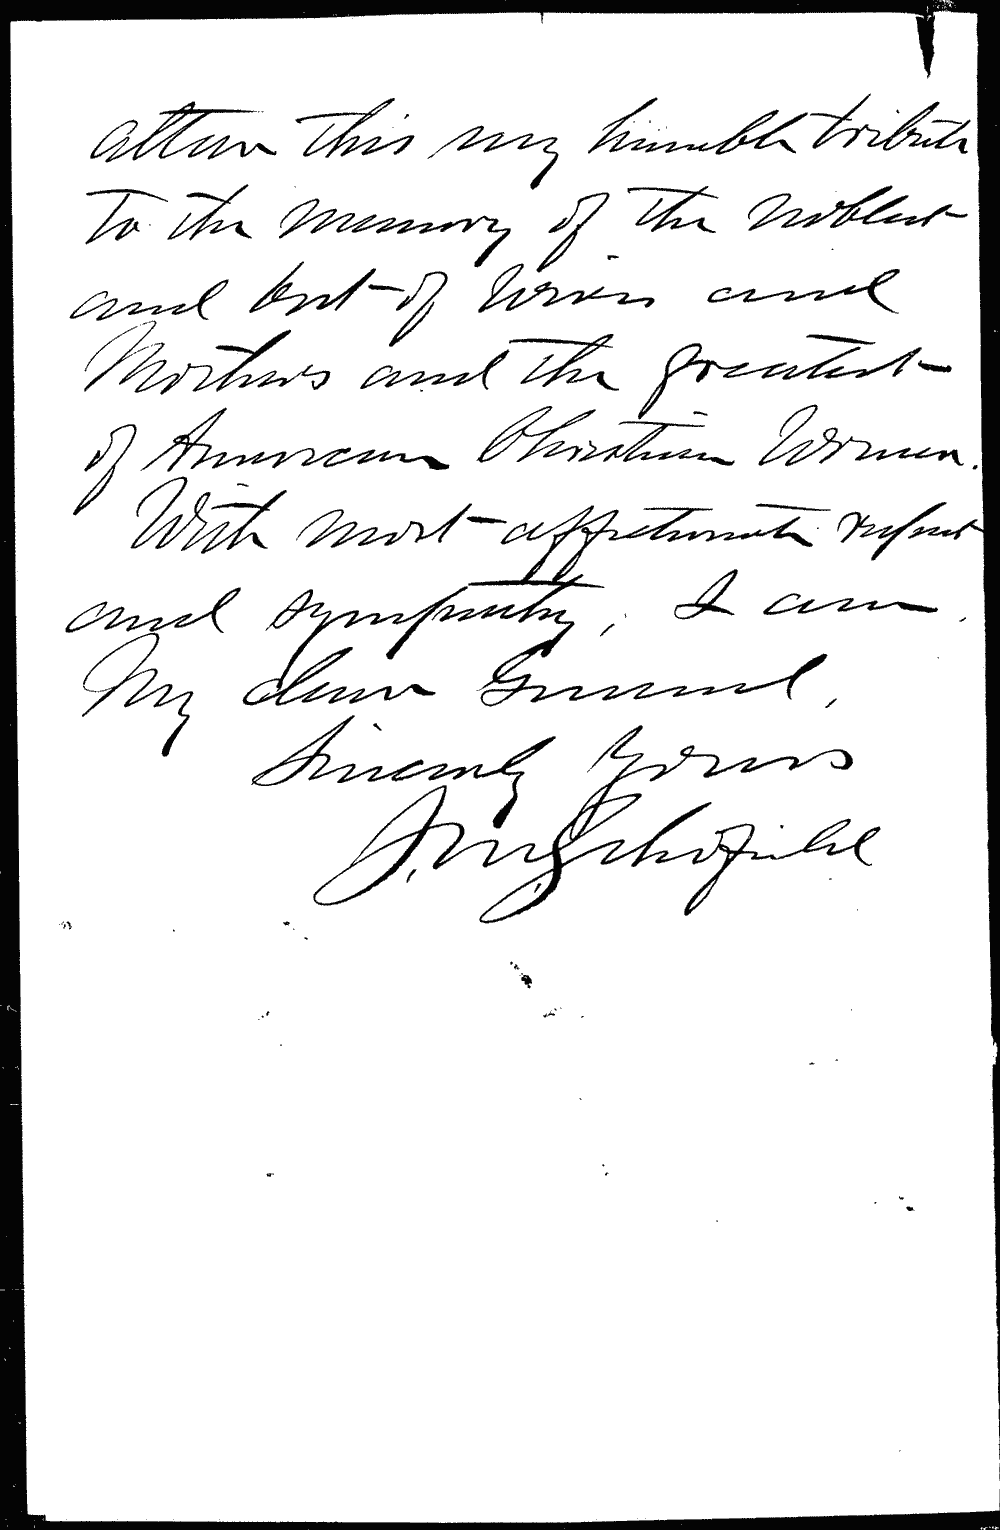 utter this my humble tribute
to the memory of the noblest
and best of Wives and
Mothers and the greatest
of American Christian Women.
With most affectionate respect
and sympathy, I am
My dear General,
Sincerely Yours
J. M. Schofield